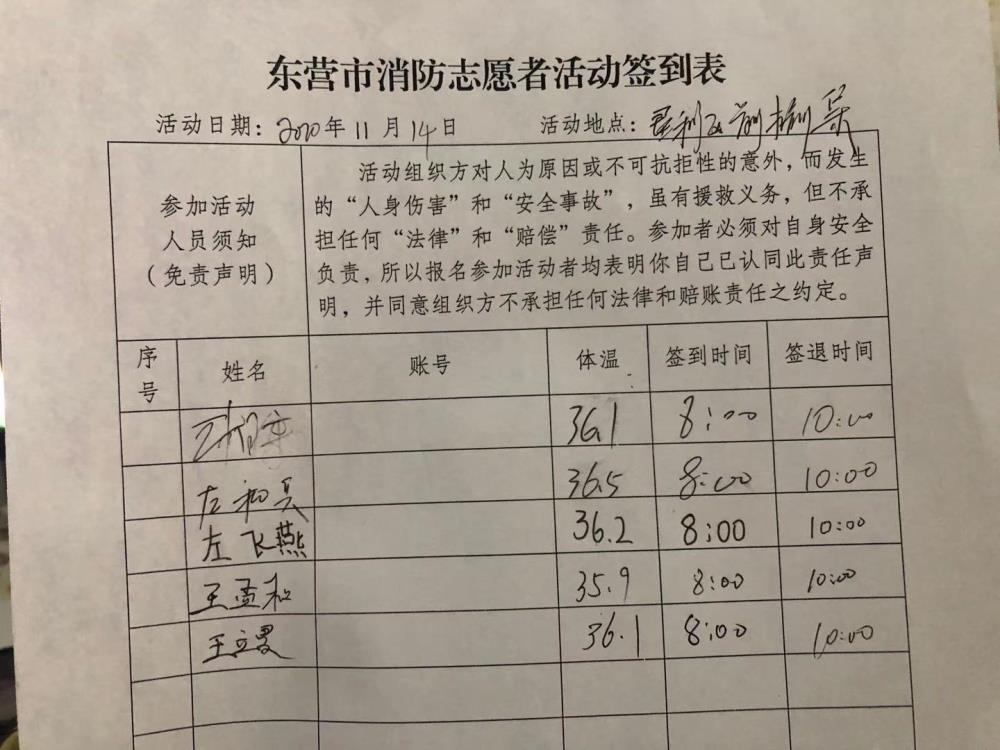 东营市消防志愿者活动签到表
活动日期：2020年11月14日 活动地点：垦利区
参加活动
人员须知
（免责声明）
活动组织方对人为原因或不可抗拒性的意外，而发生
的“人身伤害”和“安全事故”，虽有援救义务，但不承
担任何“法律”和“赔偿”责任。参加者必须对自身安全
负责，所以报名参加活动者均表明你自己已认同此责任声
明，并同意组织方不承担任何法律和赔账责任之约定。
序号 姓名 账号 体温 签到时间 签退时间
36.1 8:00 10:00
左和兵 36.5 8:00 10:00
左飞燕 36.2 8:00 10:00
王孟和 35.9 8:00 10:00
王立 36.1 8:00 10:00